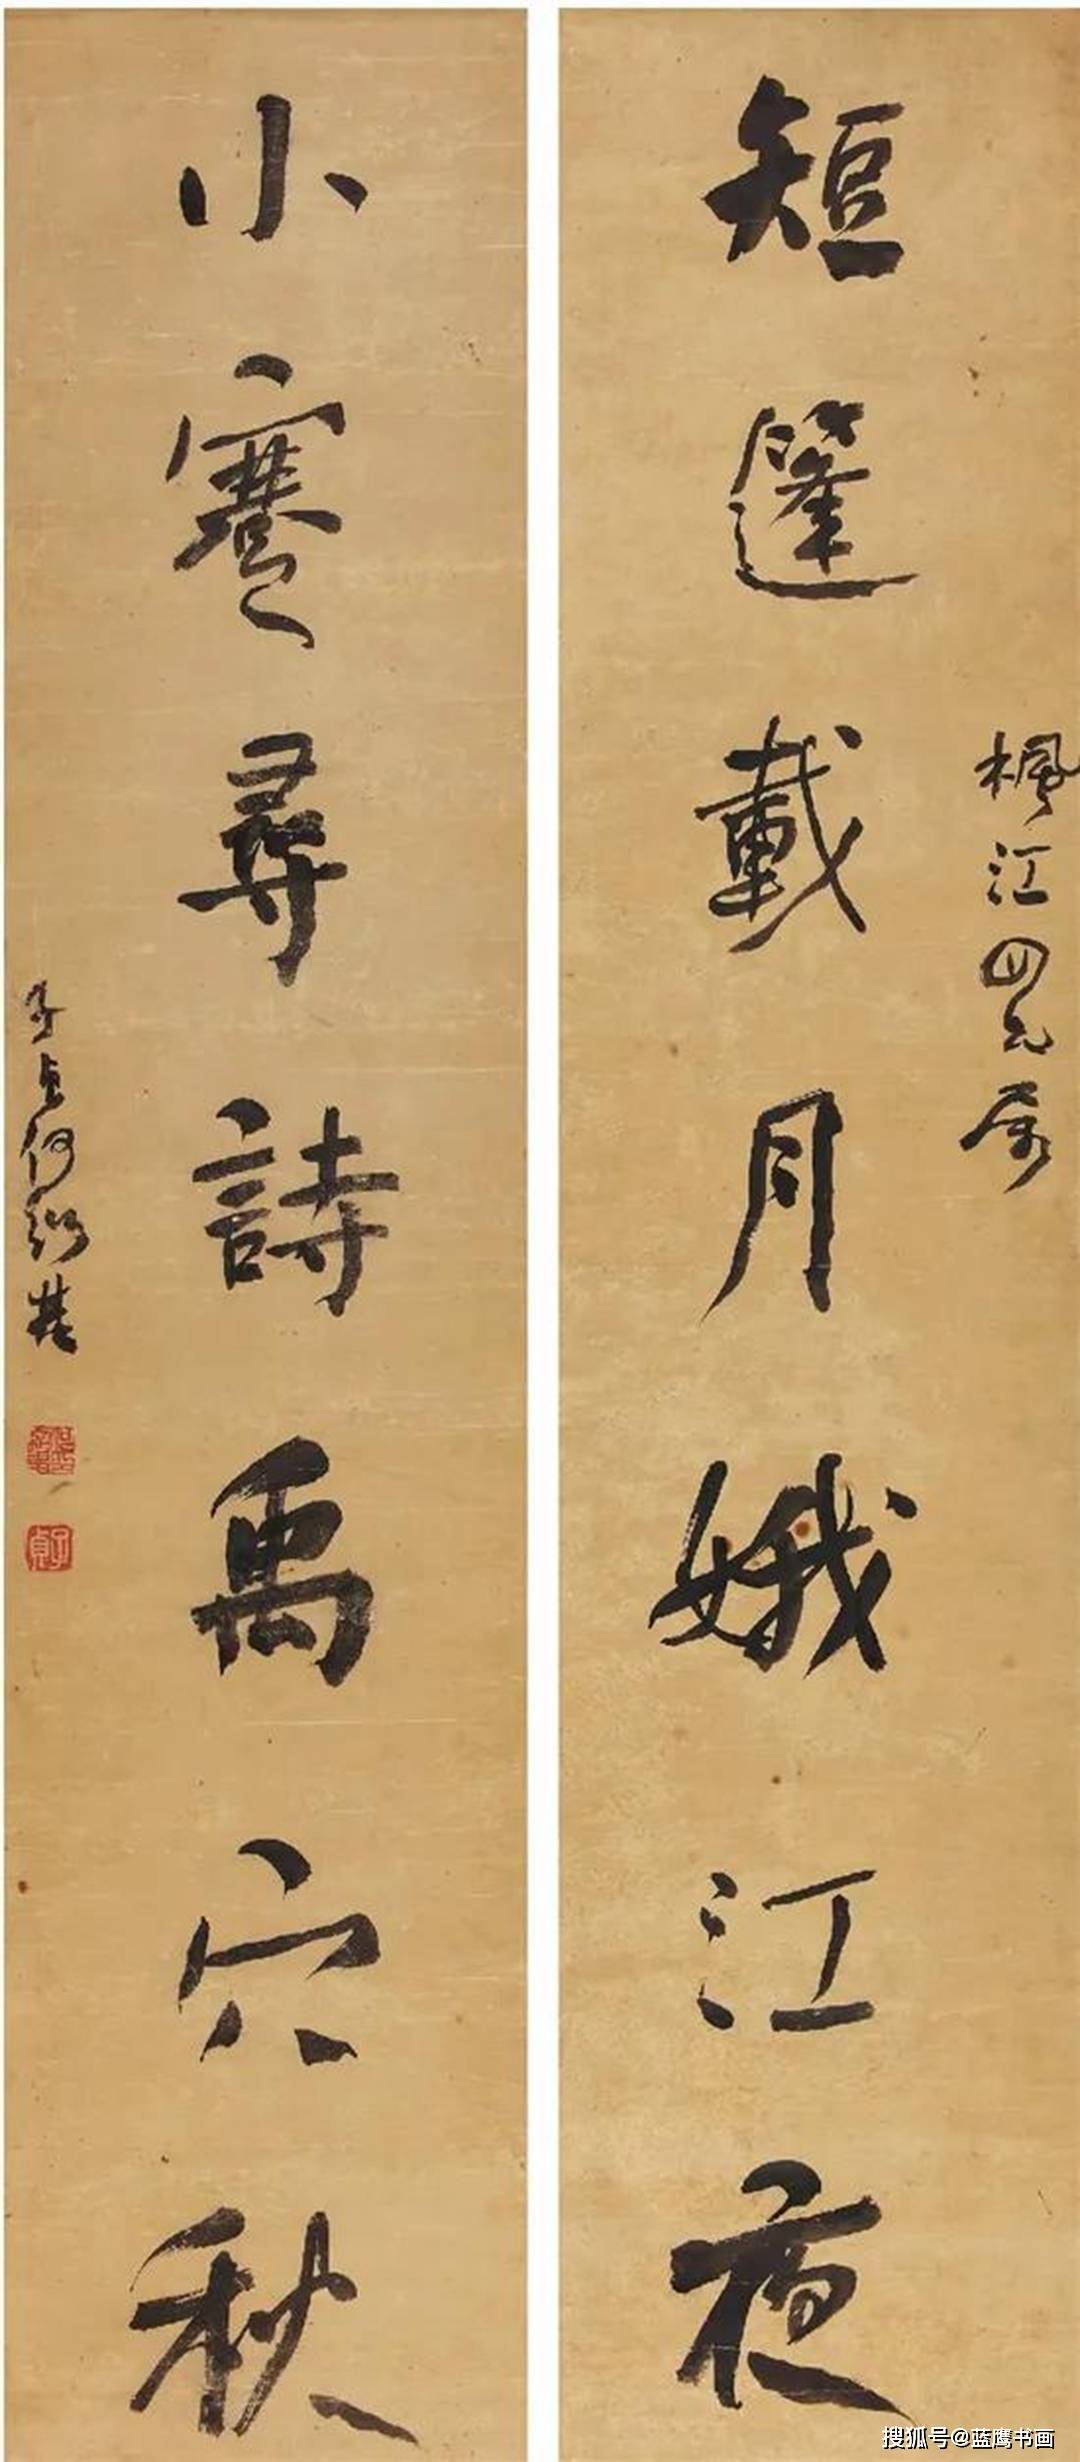 楓江四兄属
短篷載月娥江夜
小蹇尋詩禹穴秋
子貞何紹基
子貞
搜狐号@蓝鹰书画